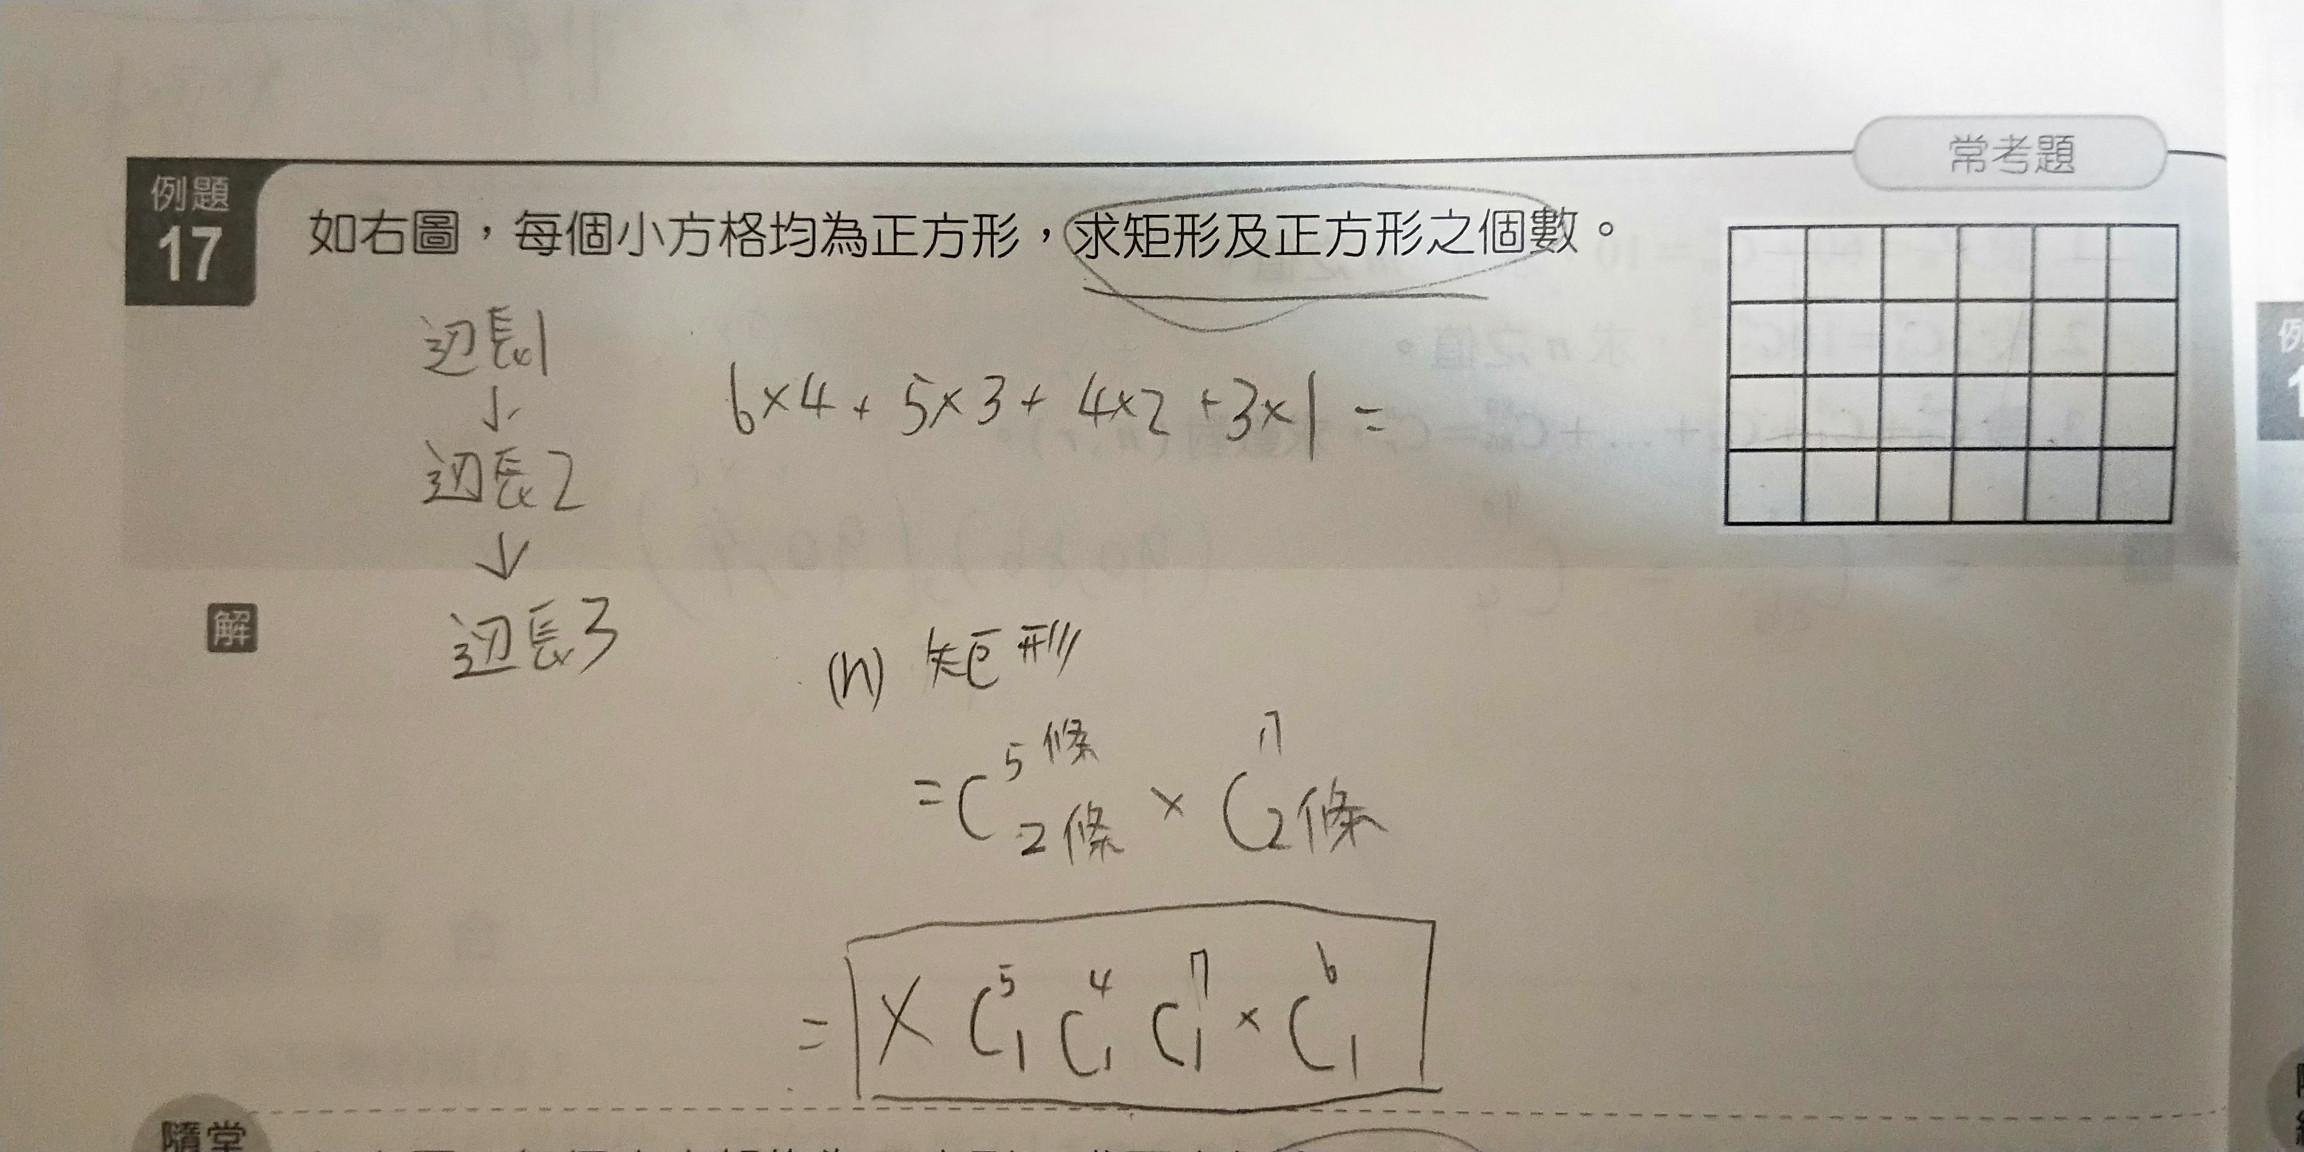 常考題
例題
17
如右圖，每個小方格均為正方形，求矩形及正方形之個數。
边長1
↓
边長2
↓
边長3
6×4+5×3+4×2+3×1=
解
(n) 矩形
=C⁵條₂條 × C⁷₂條
= × C⁵₁ C⁴₁ C⁷₁ × C⁶₁
隨堂